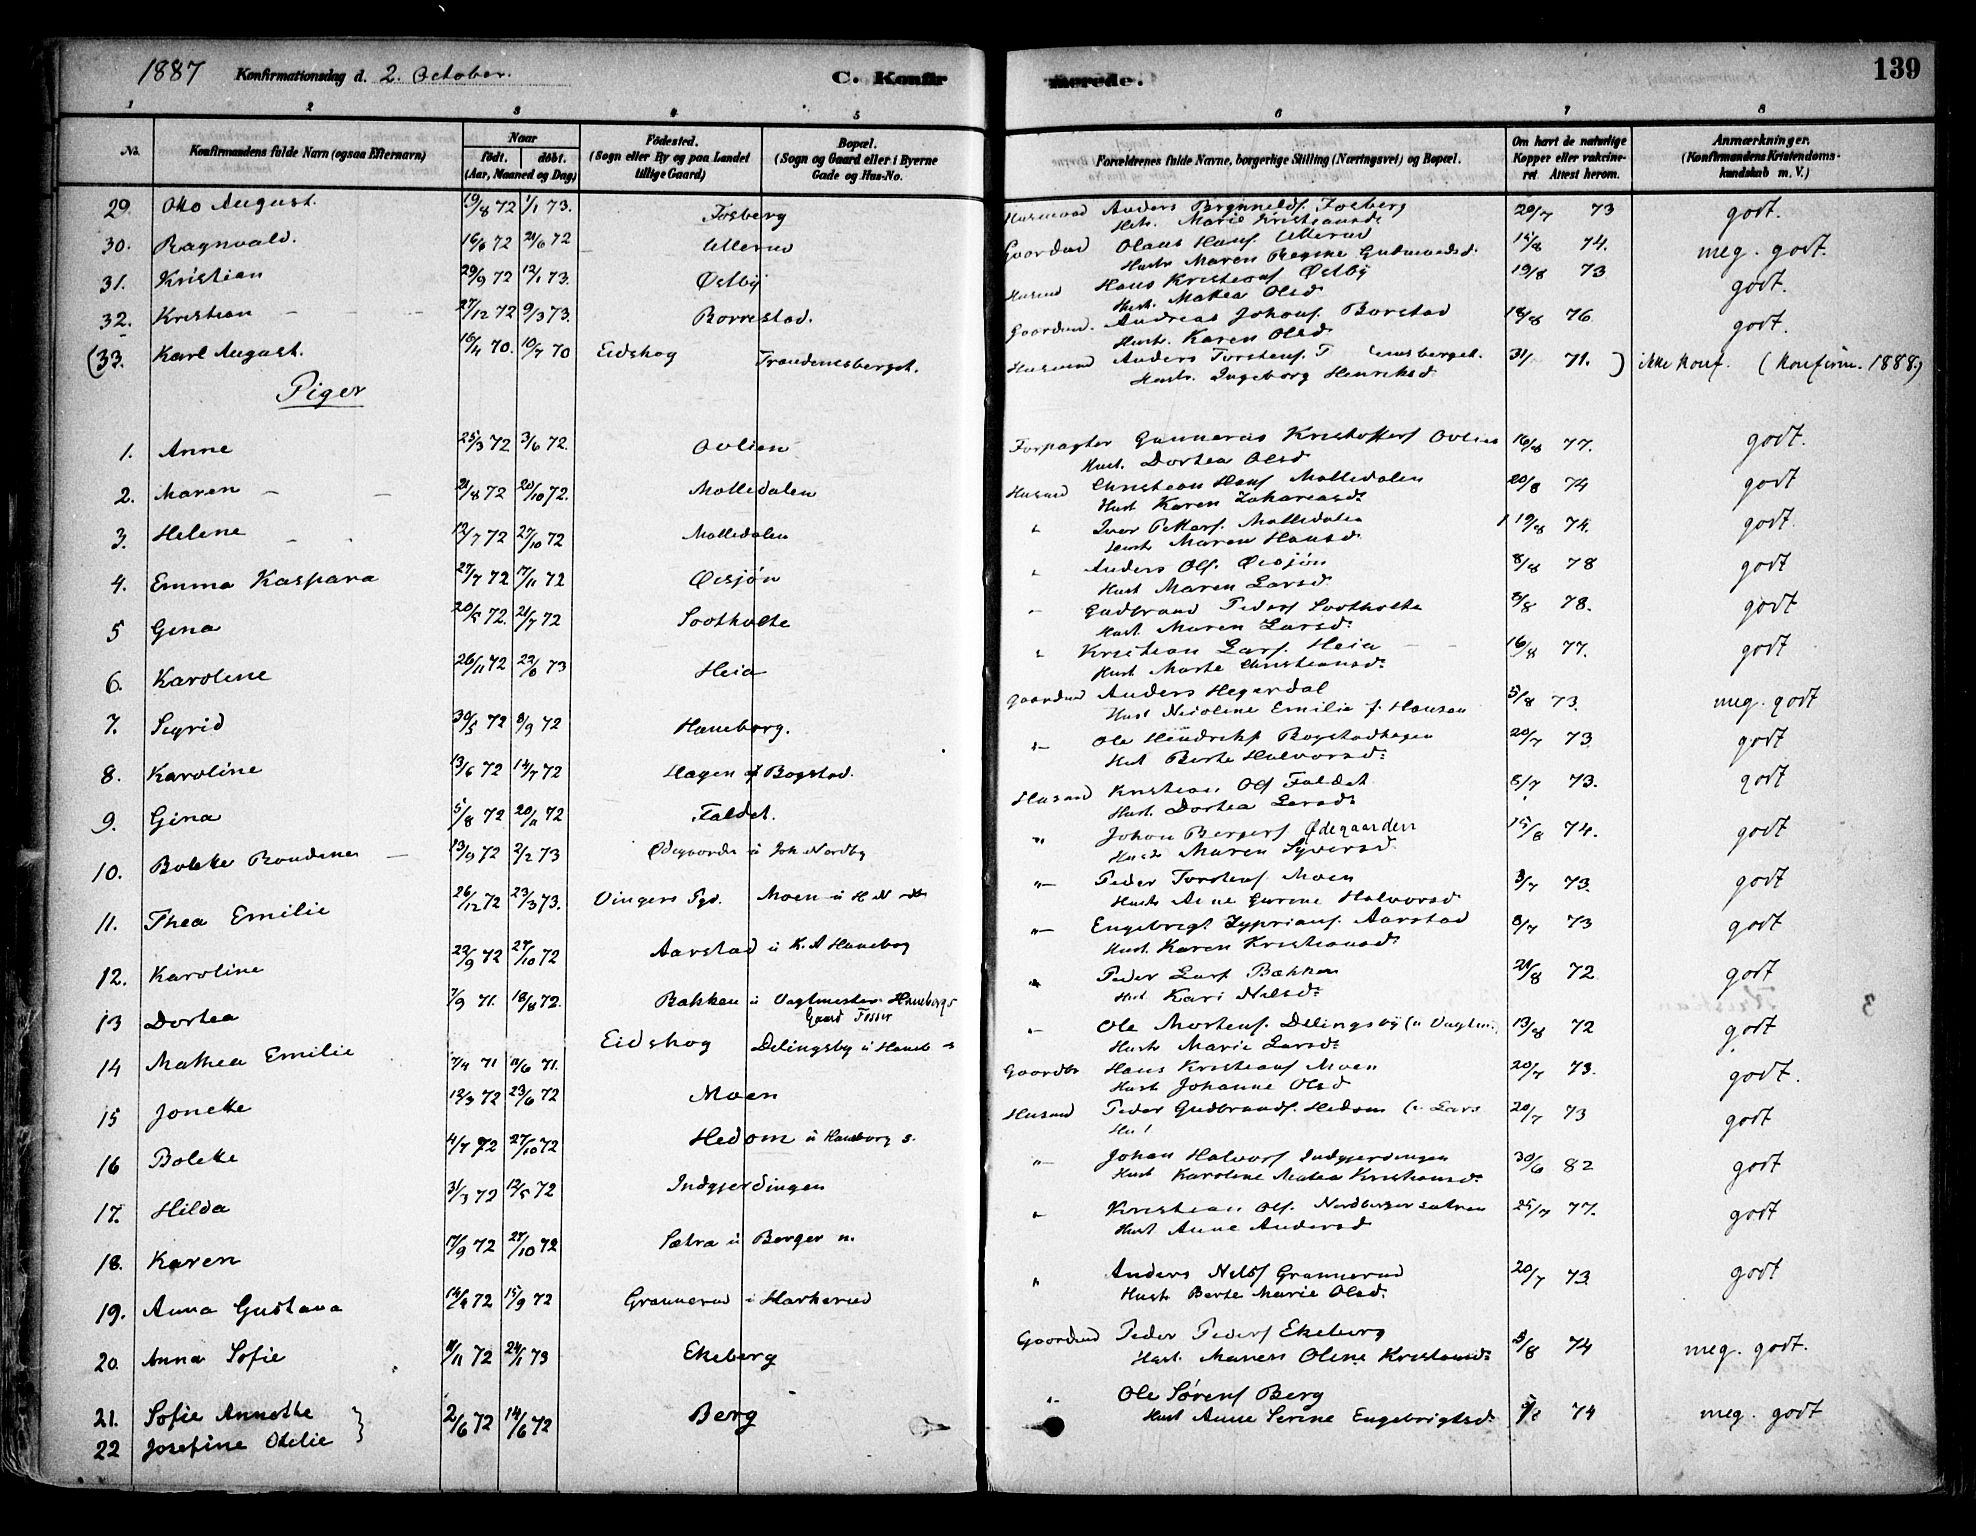 1887 Konfirmationsdag d. 2. October. C. Konfir merede. 139
1 2 3 4 5 6 7 8
No. Konfirmandens fulde Navn (ogsaa Efternavn) Naar født. døbt. (Aar, Maaned og Dag) Fødested. (Sogn eller By og paa Landet tillige Gaard) Bopæl. (Sogn og Gaard eller i Byerne Gade og Hus-No. Forældrenes fulde Navne, borgerlige Stilling (Næringsvei) og Bopæl. Om havt de naturlige Kopper eller vakcineret. Attest herom. Anmærkninger. (Konfirmandens Kristendomskundskab m. V.)
29. Otto August. 19/8 72 1/1 73. Fosberg Husmand Anders Brynnelds. Fosberg 20/7 73 godt.
Hstr. Marie Kristiansd.
30. Ragnvald. 16/6 72 21/6 72 Ullerud Gaardmd Olaus Hans. Ullerud 15/8 74. meg. godt.
Hustr. Maren
31. Kristian 29/9 72 12/1 73. Østby Husmd Hans Kristians. Østby 19/8 73 godt.
Hust. Mathea Olsd
32. Kristian 27/12 72 9/3 73. Borrestad. Gaardmd. Andreas Johans. Borstad 18/8 76 godt.
Hustr. Karen Olsd
(33. Karl August. 16/4 70. 10/7 70 Eidskog Traudenesberget. Husmand Anders Torstens. 31/ 71. ) ikke konf. (Konfirm. 1888.)
Hustr. Ingeborg Henriksd
Piger
1. Anne 25/3 72 3/6 72. Ovlien Forpagter Gunnerus Kristoffers Ovlien 16/8 77. godt.
Hust. Dortea Olsd
2. Maren 21/8 72 20/10 72. Mollidalen Husmd Christian Hans Mollidalen 20/8 74 godt
Hust Karen Zakariasd.
3. Helene 12/7 72 27/10 72 Mollidalen " Iver Petters. Mollidalen 19/8 74. godt.
Hustr Maren Hansd
4. Emma Kaspara 27/7 72 17/11 72 Øisjøn " Anders Ols. Øisjøn 8/8 78 godt
Hust Maren Larsd.
5 Gina 20/5 72. 21/7 72 Sootholte " Gudbrand Peders Sootholte 8/8 78. godt
Hust. Maren Larsd.
6. Karoline 26/11 72 22/6 73 Heia " Kristian Lars. Heia 16/8 77. godt
Hust Marte Christiansd.
7. Sigrid 30/5 72 8/9 72 Haneborg. Gaardmd Anders Hegerdal 5/8 73. meg. godt
Hust Nicoline Emilie f. Hansen
8. Karoline 13/6 72 14/7 72 Hagen af Bogstad. " Ole Hendriks Bogstadhagen 20/7 73 godt
Hst Berte Halvorsd.
9. Gina 5/8 72 20/11 72 Faldet. Husmd Kristian Ols Faldet 8/7 73. godt
Hust. Dortea Larsd.
10. Bolette Randine 13/9 72 2/2 73 Ødegaarde u Joh Nordby " Johan Bergers Ødegaarden 15/8 74. godt
Hust Maren Syversd
11. Thea Emilie 26/12 72 23/3 73. Vingers Pgd. Moen u " Peder Torstens Moen 3/7 73. godt
Hustr Anne Gurine Halvorsd.
12. Karoline 22/9 72 27/10 72 Aarstad u K. A Haneborg " Engebrigt Zyprians. Aarstad 8/7 73 godt
Hust. Karen Kristiansd.
13 Dortea 7/9 71. 18/8 72. Bakken u Vagtmester Haneborgs " Peder Lars Bakken 21/8 72 godt
Gaard Fosser Hust Kari Nilsd.
14 Mathea Emilie 7/4 71 11/6 71. Eidskog Delingsby u Haneb " Ole Mortens. Delingsby (u 13/8 72 godt
Hustr Marie Larsd.
15 Jonette 12/3 72 23/6 72 Moen Gaardbr Hans Kristians Moen 20/7 73. godt.
Hust Johanne Olsd
16 Bolette 4/7 72 27/10 72 Hedom u Haneborg s. Husmd Peder Gudbrands. Hedom (u Lars 20/7 73 godt
17. Hilda 31/3 72 12/5 72 Indgjerdingen " Johan Halvors Indgjerdingen 30/6 82 godt
Hust Karoline Matea Kristiansd.
18. Karen 17/9 72 27/10 72 Sætra u Berger n. " Kristian Ols. Nordbergersætren 25/7 77. godt
Hust Anne Andersd
19. Anna Gustava 14/4 72 15/9 72 Grannerud i Harkerud " Anders Nels Grannerud 20/7 73 godt
Hustr Berte Marie Olsd.
20. Anna Sofie 11/11 72 24/1 73 Ekeberg Gaardmd Peder Peders Ekeberg 5/8 74 meg. godt.
Hust. Maren Oline Kristiansd.
21. Sofie Annette } 2/6 72 14/6 72 Berg " Ole Sørens Berg
22 Josefine Otelie Hust Anne Serine Engebrigtsd. 5/8 74 meg. godt